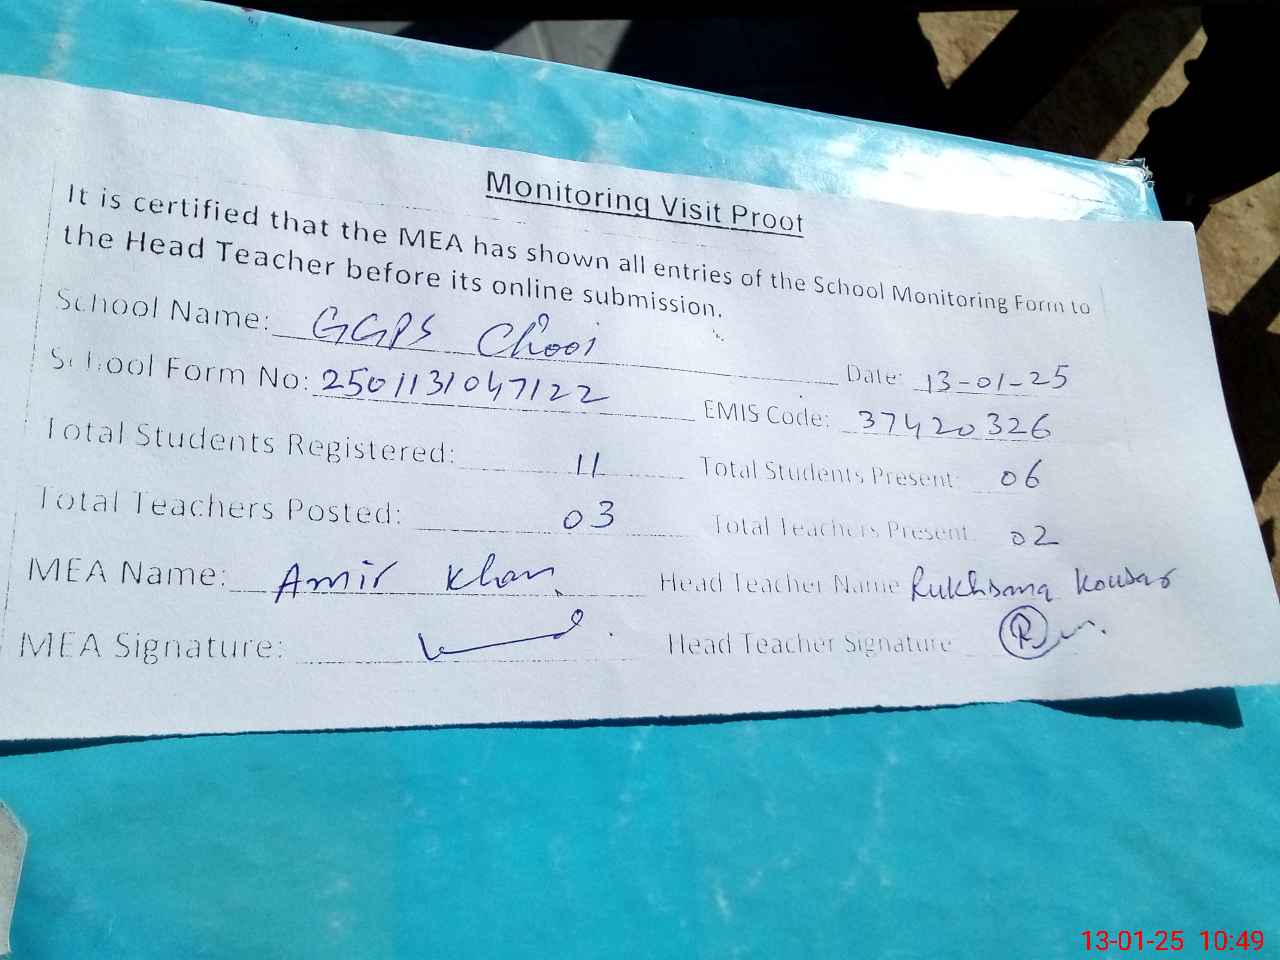 Monitoring Visit Proof
It is certified that the MEA has shown all entries of the School Monitoring Form to
the Head Teacher before its online submission.
School Name: GGPS Chooi Date: 13-01-25
School Form No: 2501131047122 EMIS Code: 37420326
Total Students Registered: 11 Total Students Present: 06
Total Teachers Posted: 03 Total Teachers Present 02
MEA Name: Amir Khan Head Teacher Name Rukhsana Kousar
MEA Signature: Head Teacher Signature
13-01-25 10:49